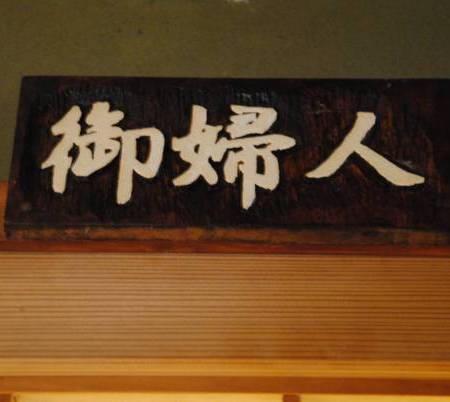 御婦人